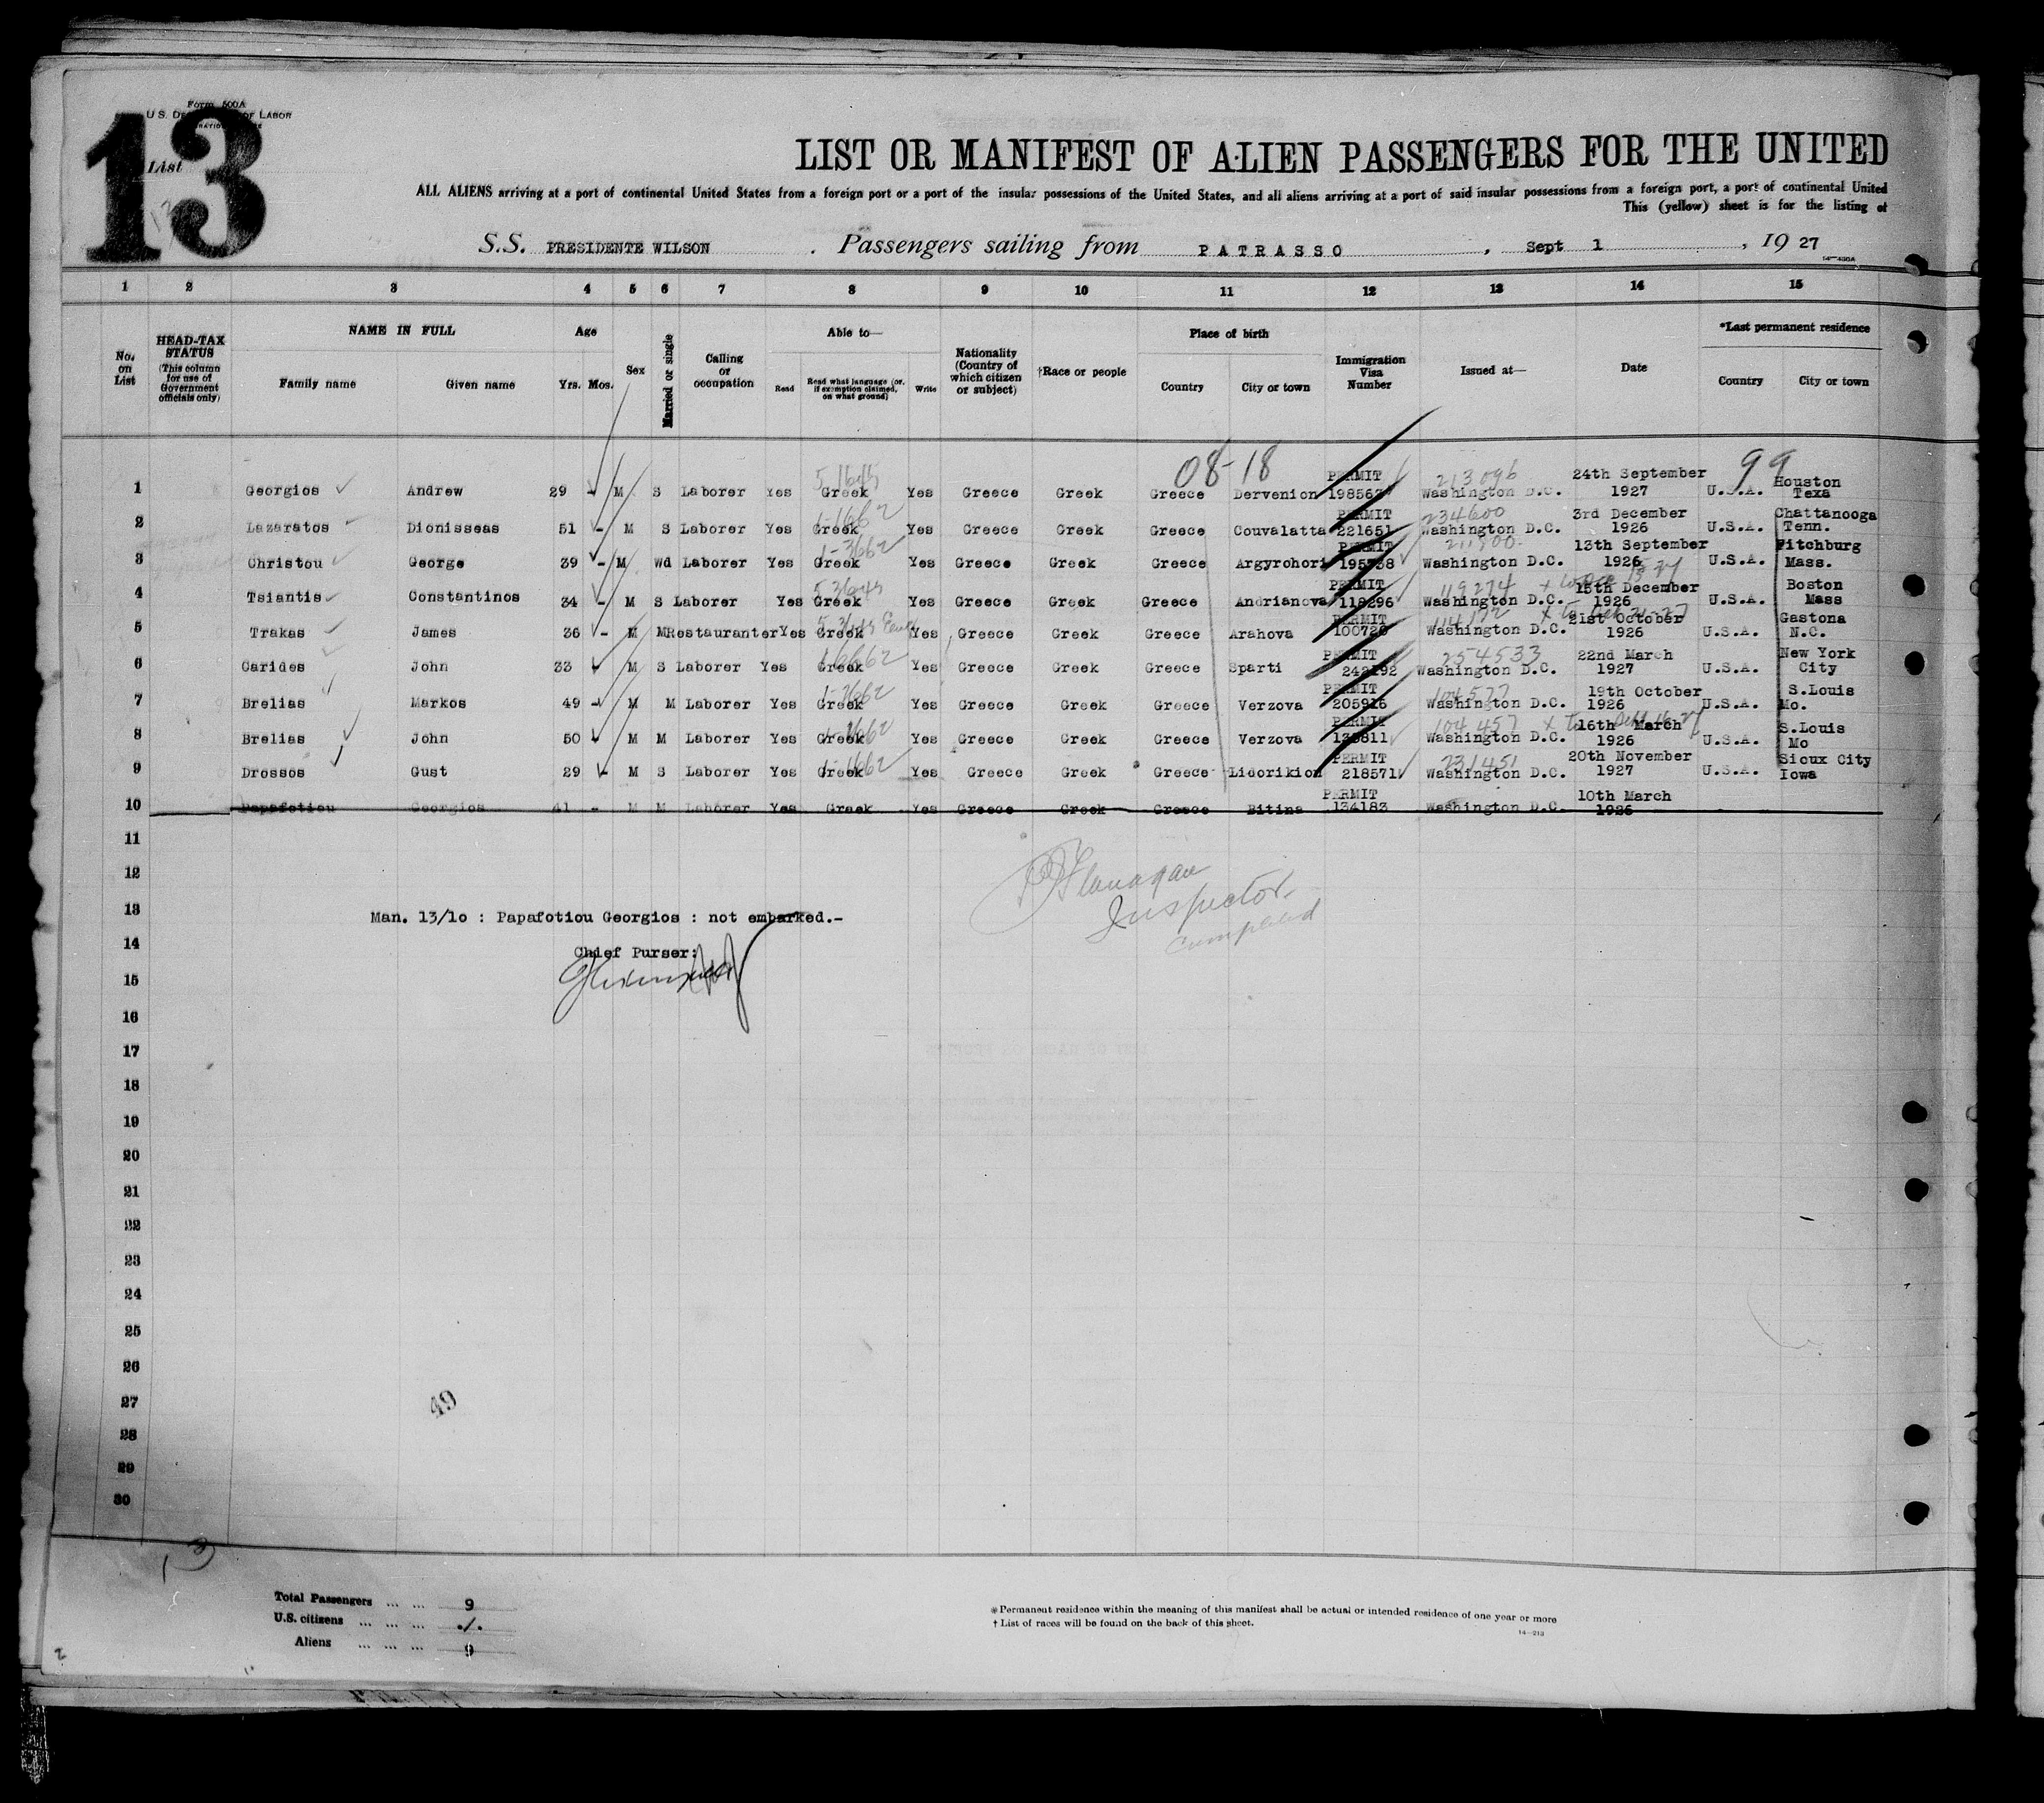 Form 500A
U. S. DE OF LABOR
List
13
LIST OR MANIFEST OF ALIEN PASSENGERS FOR THE UNITED
ALL ALIENS arriving at a port of continental United States from a foreign port or a port of the insular possessions of the United States, and all aliens arriving at a port of said insular possessions from a foreign port, a port of continental United
This (yellow) sheet is for the listing of
S.S. PRESIDENTE WILSON . Passengers sailing from PATRASSO , Sept 1 , 19 27
1 2 3 4 5 6 7 8 9 10 11 12 13 14 15
No. on List
HEAD-TAX STATUS (This column for use of Government officials only)
NAME IN FULL Family name Given name
Age Yrs. Mos.
Sex
Married or single
Calling or occupation
Able to— Read Read what language (or, if exemption claimed, on what ground) Write
Nationality (Country of which citizen or subject)
†Race or people
Place of birth Country City or town
Immigration Visa Number
Issued at—
Date
*Last permanent residence Country City or town
08-18 99
1 Georgios Andrew 29 - M S Laborer Yes Greek Yes Greece Greek Greece Dervenion PERMIT 213096 Washington D.C. 24th September 1927 U.S.A. Houston Texa
2 Lazaratos Dionisseas 51 - M S Laborer Yes Greek Yes Greece Greek Greece Couvalatta PERMIT 221651 234600 Washington D.C. 3rd December 1926 U.S.A. Chattanooga Tenn.
3 Christou George 39 - M Wd Laborer Yes Greek Yes Greece Greek Greece Argyrohori PERMIT Washington D.C. 13th September 1926 U.S.A. Fitchburg Mass.
4 Tsiantis Constantinos 34 - M S Laborer Yes Greek Yes Greece Greek Greece Andrianova PERMIT 118296 119274 Washington D.C. 15th December 1926 U.S.A. Boston Mass
5 Trakas James 36 - M M Restauranter Yes Greek Yes Greece Greek Greece Arahova PERMIT 100720 Washington D.C. 21st October 1926 U.S.A. Gastona N.C.
6 Carides John 33 M S Laborer Yes Greek Yes Greece Greek Greece Sparti PERMIT 254533 Washington D.C. 22nd March 1927 U.S.A. New York City
7 Brelias Markos 49 - M M Laborer Yes Greek Yes Greece Greek Greece Verzova PERMIT 205916 Washington D.C. 19th October 1926 U.S.A. S.Louis Mo.
8 Brelias John 50 M M Laborer Yes Greek Yes Greece Greek Greece Verzova PERMIT 104457 Washington D.C. 16th March 1926 U.S.A. S.Louis Mo
9 Drossos Gust 29 - M S Laborer Yes Greek Yes Greece Greek Greece Lidorikion PERMIT 218571 231451 Washington D.C. 20th November 1927 U.S.A. Sioux City Iowa
10 Papafotiou Georgios 41 - M M Laborer Yes Greek Yes Greece Greek Greece Bitina PERMIT 134183 Washington D.C. 10th March 1926
11
12
Flanagan
Inspector
13 Man. 13/10 : Papafotiou Georgios : not embarked.-
14 Chief Purser:
15
16
17
18
19
20
21
22
23
24
25
26
27
49
28
29
30
Total Passengers ... ... 9
U.S. citizens ... ... ... ./.
Aliens ... ... ... 9
*Permanent residence within the meaning of this manifest shall be actual or intended residence of one year or more
† List of races will be found on the back of this sheet.
14—213